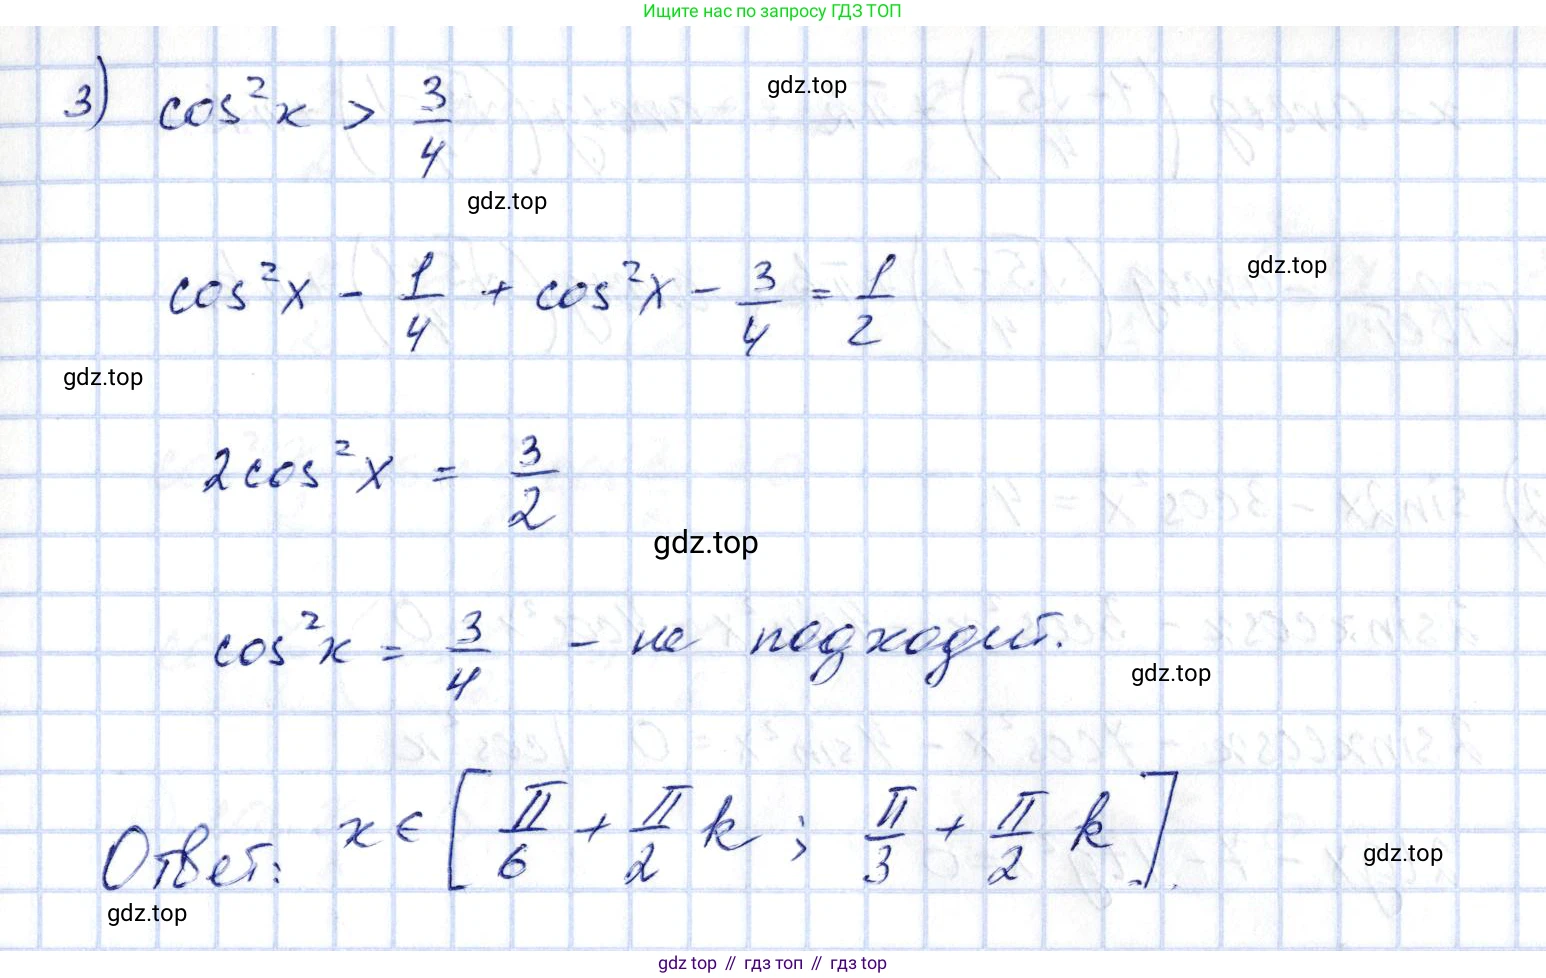 Ищите нас по запросу ГДЗ ТОП
gdz.top
3) cos²x > 3/4
gdz.top
cos²x - 1/4 + cos²x - 3/4 = 1/2
gdz.top
gdz.top
2cos²x = 3/2
gdz.top
cos²x = 3/4 - не подходит.
gdz.top
Ответ: x ∈ [π/6 + π/2 k ; π/3 + π/2 k].
gdz.top
gdz.top
gdz top // гдз топ // гдз top